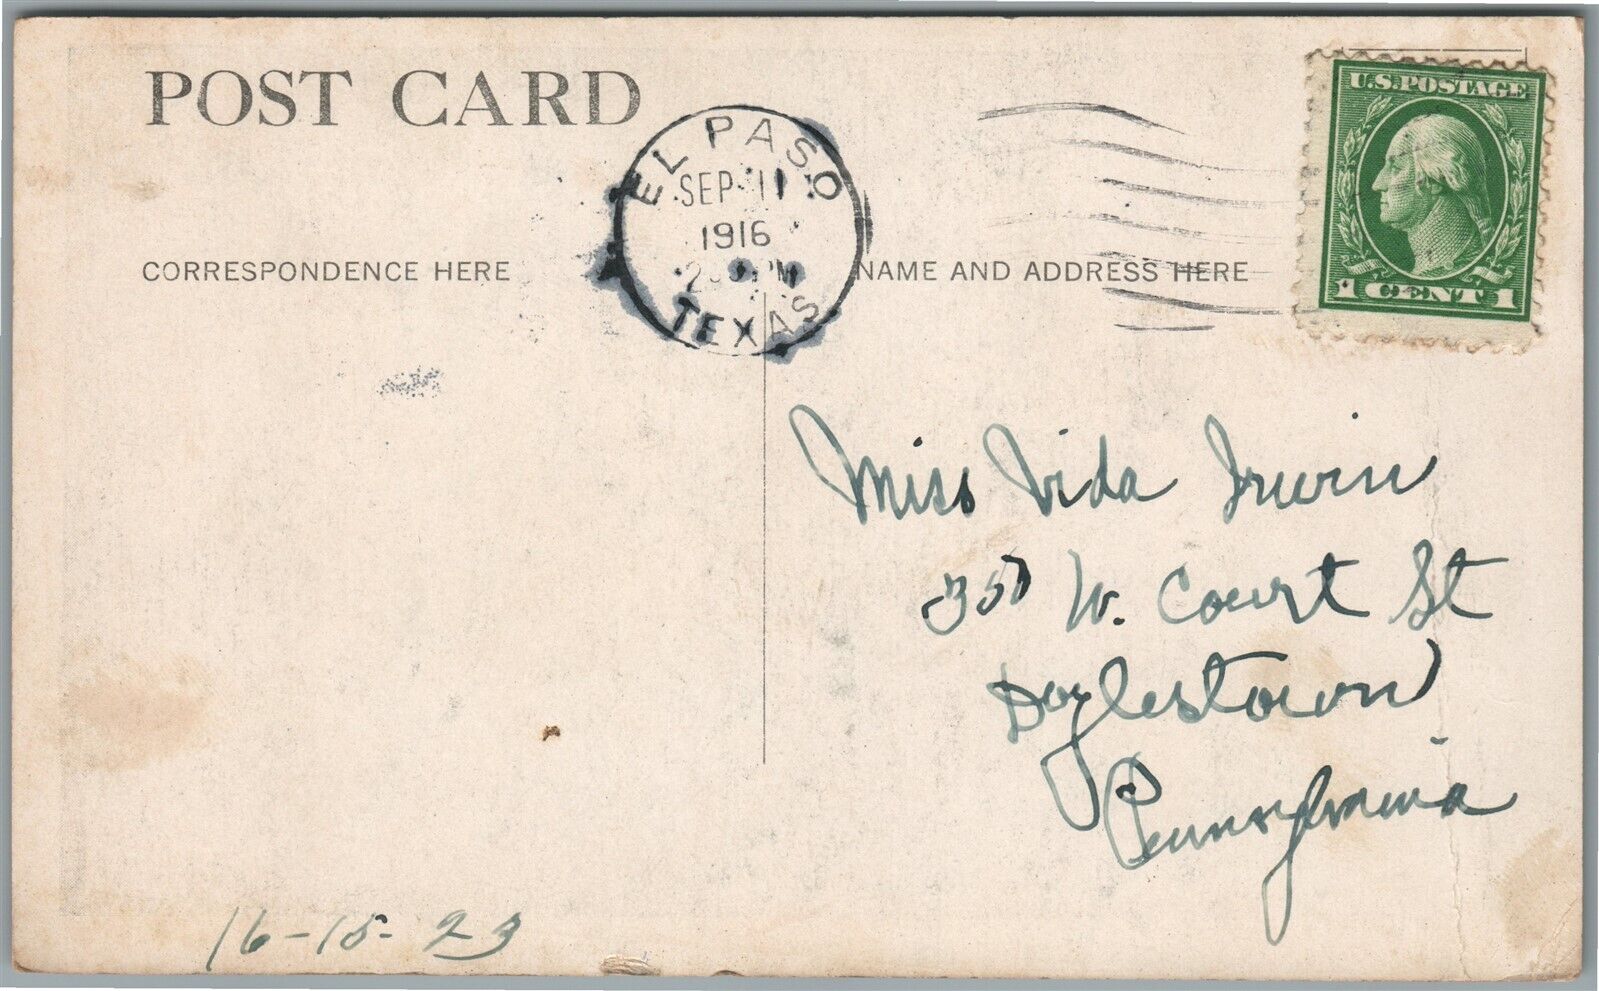 POST CARD
EL PASO
SEP 11
1916
PM
TEXAS
U.S. POSTAGE
1 CENT 1
CORRESPONDENCE HERE
NAME AND ADDRESS HERE
Miss Vida Irwin
357 W. Court St
Doylestown
Pennsylvania
16-15-23